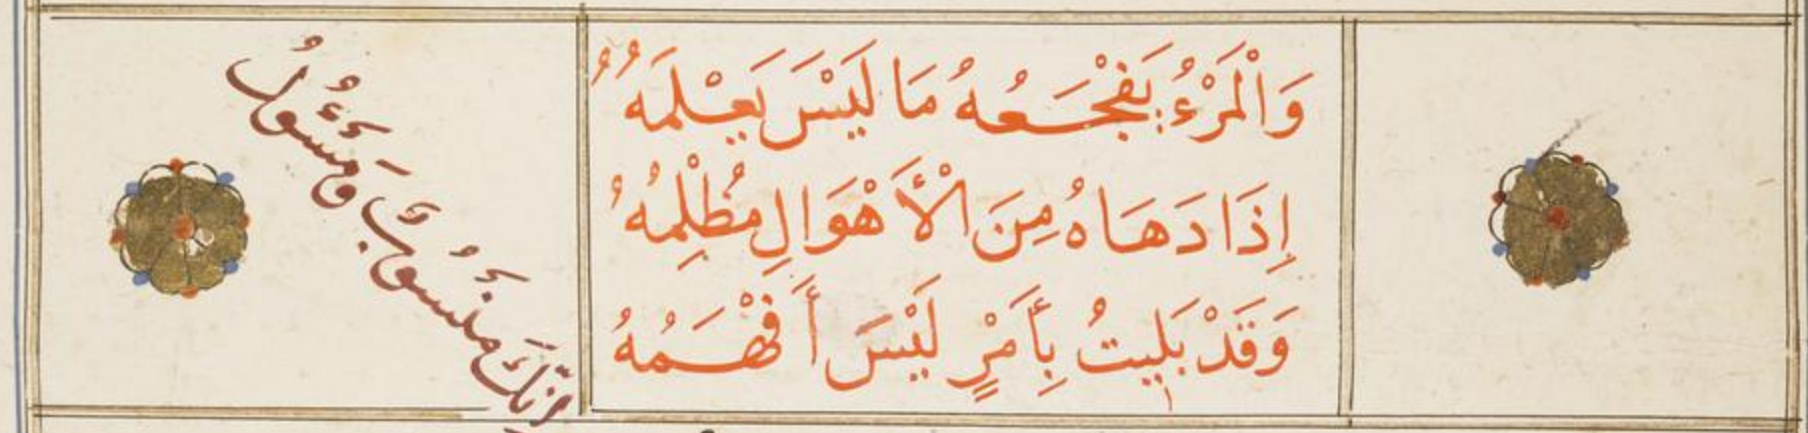 وَالْمَرْءُ يَفْجَعُهُ مَا لَيْسَ يَعْلَمُهُ
إِذَا دَهَاهُ مِنَ الْأَهْوَالِ مُظْلِمُهُ
وَقَدْ بَلِيتُ بِأَمْرٍ لَيْسَ أَفْهَمُهُ
إِنَّكَ مَنْسُوبٌ وَمَسْؤُولُ